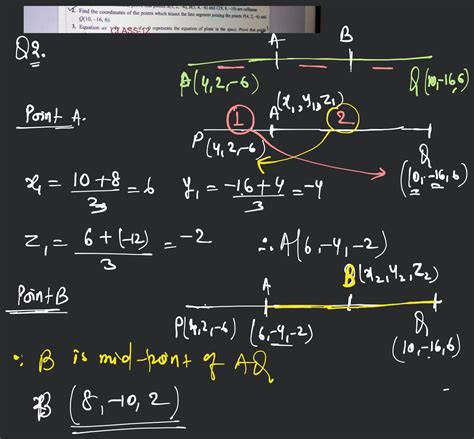 2. Find the coordinates of the points which trisect the line segment joining the points P(4, 2, –6) and
Q(10, –16, 6).
3. represents the equation of plane in the space. Prove that
CLASS-12
Q2.
A B
P(4,2,-6) Q(10,-16,6)
Point A.
1 A(x₁,y₁,z₁) 2
P(4,2,-6) Q(10,-16,6)
x₁ = 10+8/3 = 6 y₁ = -16+4/3 = -4
z₁ = 6+(-12)/3 = -2 ∴ A(6,-4,-2)
Point B
A B(x₂,y₂,z₂)
P(4,2,-6) (6,-4,-2) Q(10,-16,6)
∵ B is mid-point of AQ
B (8,-10,2)